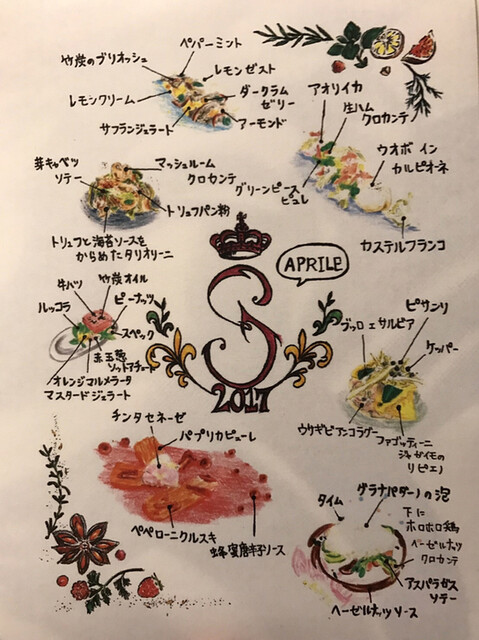 ペパーミント
竹炭のブリオッシュ
レモンゼスト
レモンクリーム
ダークラム
ゼリー
サフランジェラート
アーモンド
アオリイカ
生ハム
クロカンテ
ウオボ イン
カルピオーネ
グリーンピース
ピュレ
カステルフランコ
芽キャベツ
ソテー
マッシュルーム
クロカンテ
トリュフパン粉
トリュフと海苔ソースを
からめたタリオリーニ
APRILE
S
2017
牛ハツ
竹炭オイル
ルッコラ
ピーナッツ
スペック
赤玉葱
ソットアチェート
オレンジマルメラータ
マスタードジェラート
ピサンリ
ブッロ エ サルビア
ケッパー
ウサギビアンコラグー
ファゴッティーニ
リピエノ
チンタセネーゼ
パプリカピューレ
ペペローニクルスキ
蜂蜜唐辛子ソース
グラナパダーノの泡
タイム
下に
ホロホロ鶏
ヘーゼルナッツ
クロカンテ
アスパラガス
ソテー
ヘーゼルナッツソース